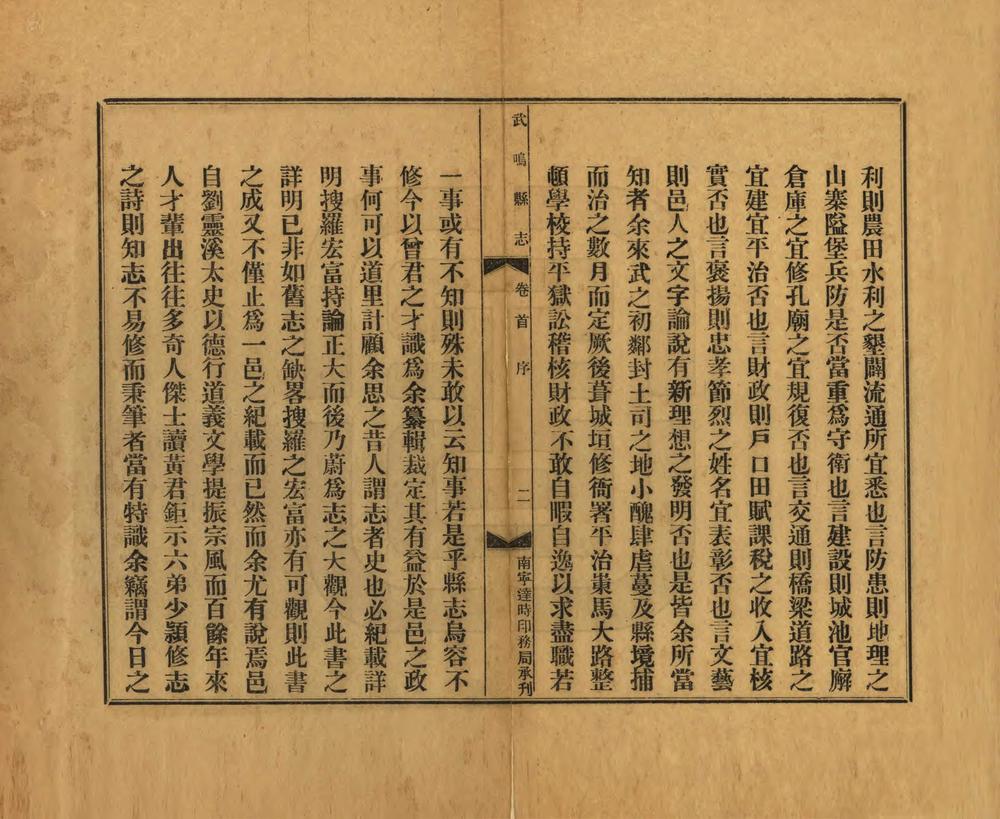 利則農田水利之墾闢流通所宜悉也言防患則地理之
山寨隘堡兵防是否當重爲守衛也言建設則城池官廨
倉庫之宜修孔廟之宜規復否也言交通則橋梁道路之
宜建宜平治否也言財政則戶口田賦課稅之收入宜核
實否也言褒揚則忠孝節烈之姓名宜表彰否也言文藝
則邑人之文字論說有新理想之發明否也是皆余所當
知者余來武之初鄰封土司之地小醜肆虐蔓及縣境捕
而治之數月而定厥後葺城垣修衙署平治巢馬大路整
頓學校持平獄訟稽核財政不敢自暇自逸以求盡職若
武鳴縣志 卷首 序 二 南寧達時印務局承刊
一事或有不知則殊未敢以云知事若是乎縣志烏容不
修今以曾君之才識爲余纂輯裁定其有益於是邑之政
事何可以道里計顧余思之昔人謂志者史也必紀載詳
明搜羅宏富持論正大而後乃蔚爲志之大觀今此書之
詳明已非如舊志之缺畧搜羅之宏富亦有可觀則此書
之成又不僅止爲一邑之紀載而已然而余尤有說焉邑
自劉靈溪太史以德行道義文學提振宗風而百餘年來
人才輩出往往多奇人傑士讀黃君鉅示六弟少潁修志
之詩則知志不易修而秉筆者當有特識余竊謂今日之